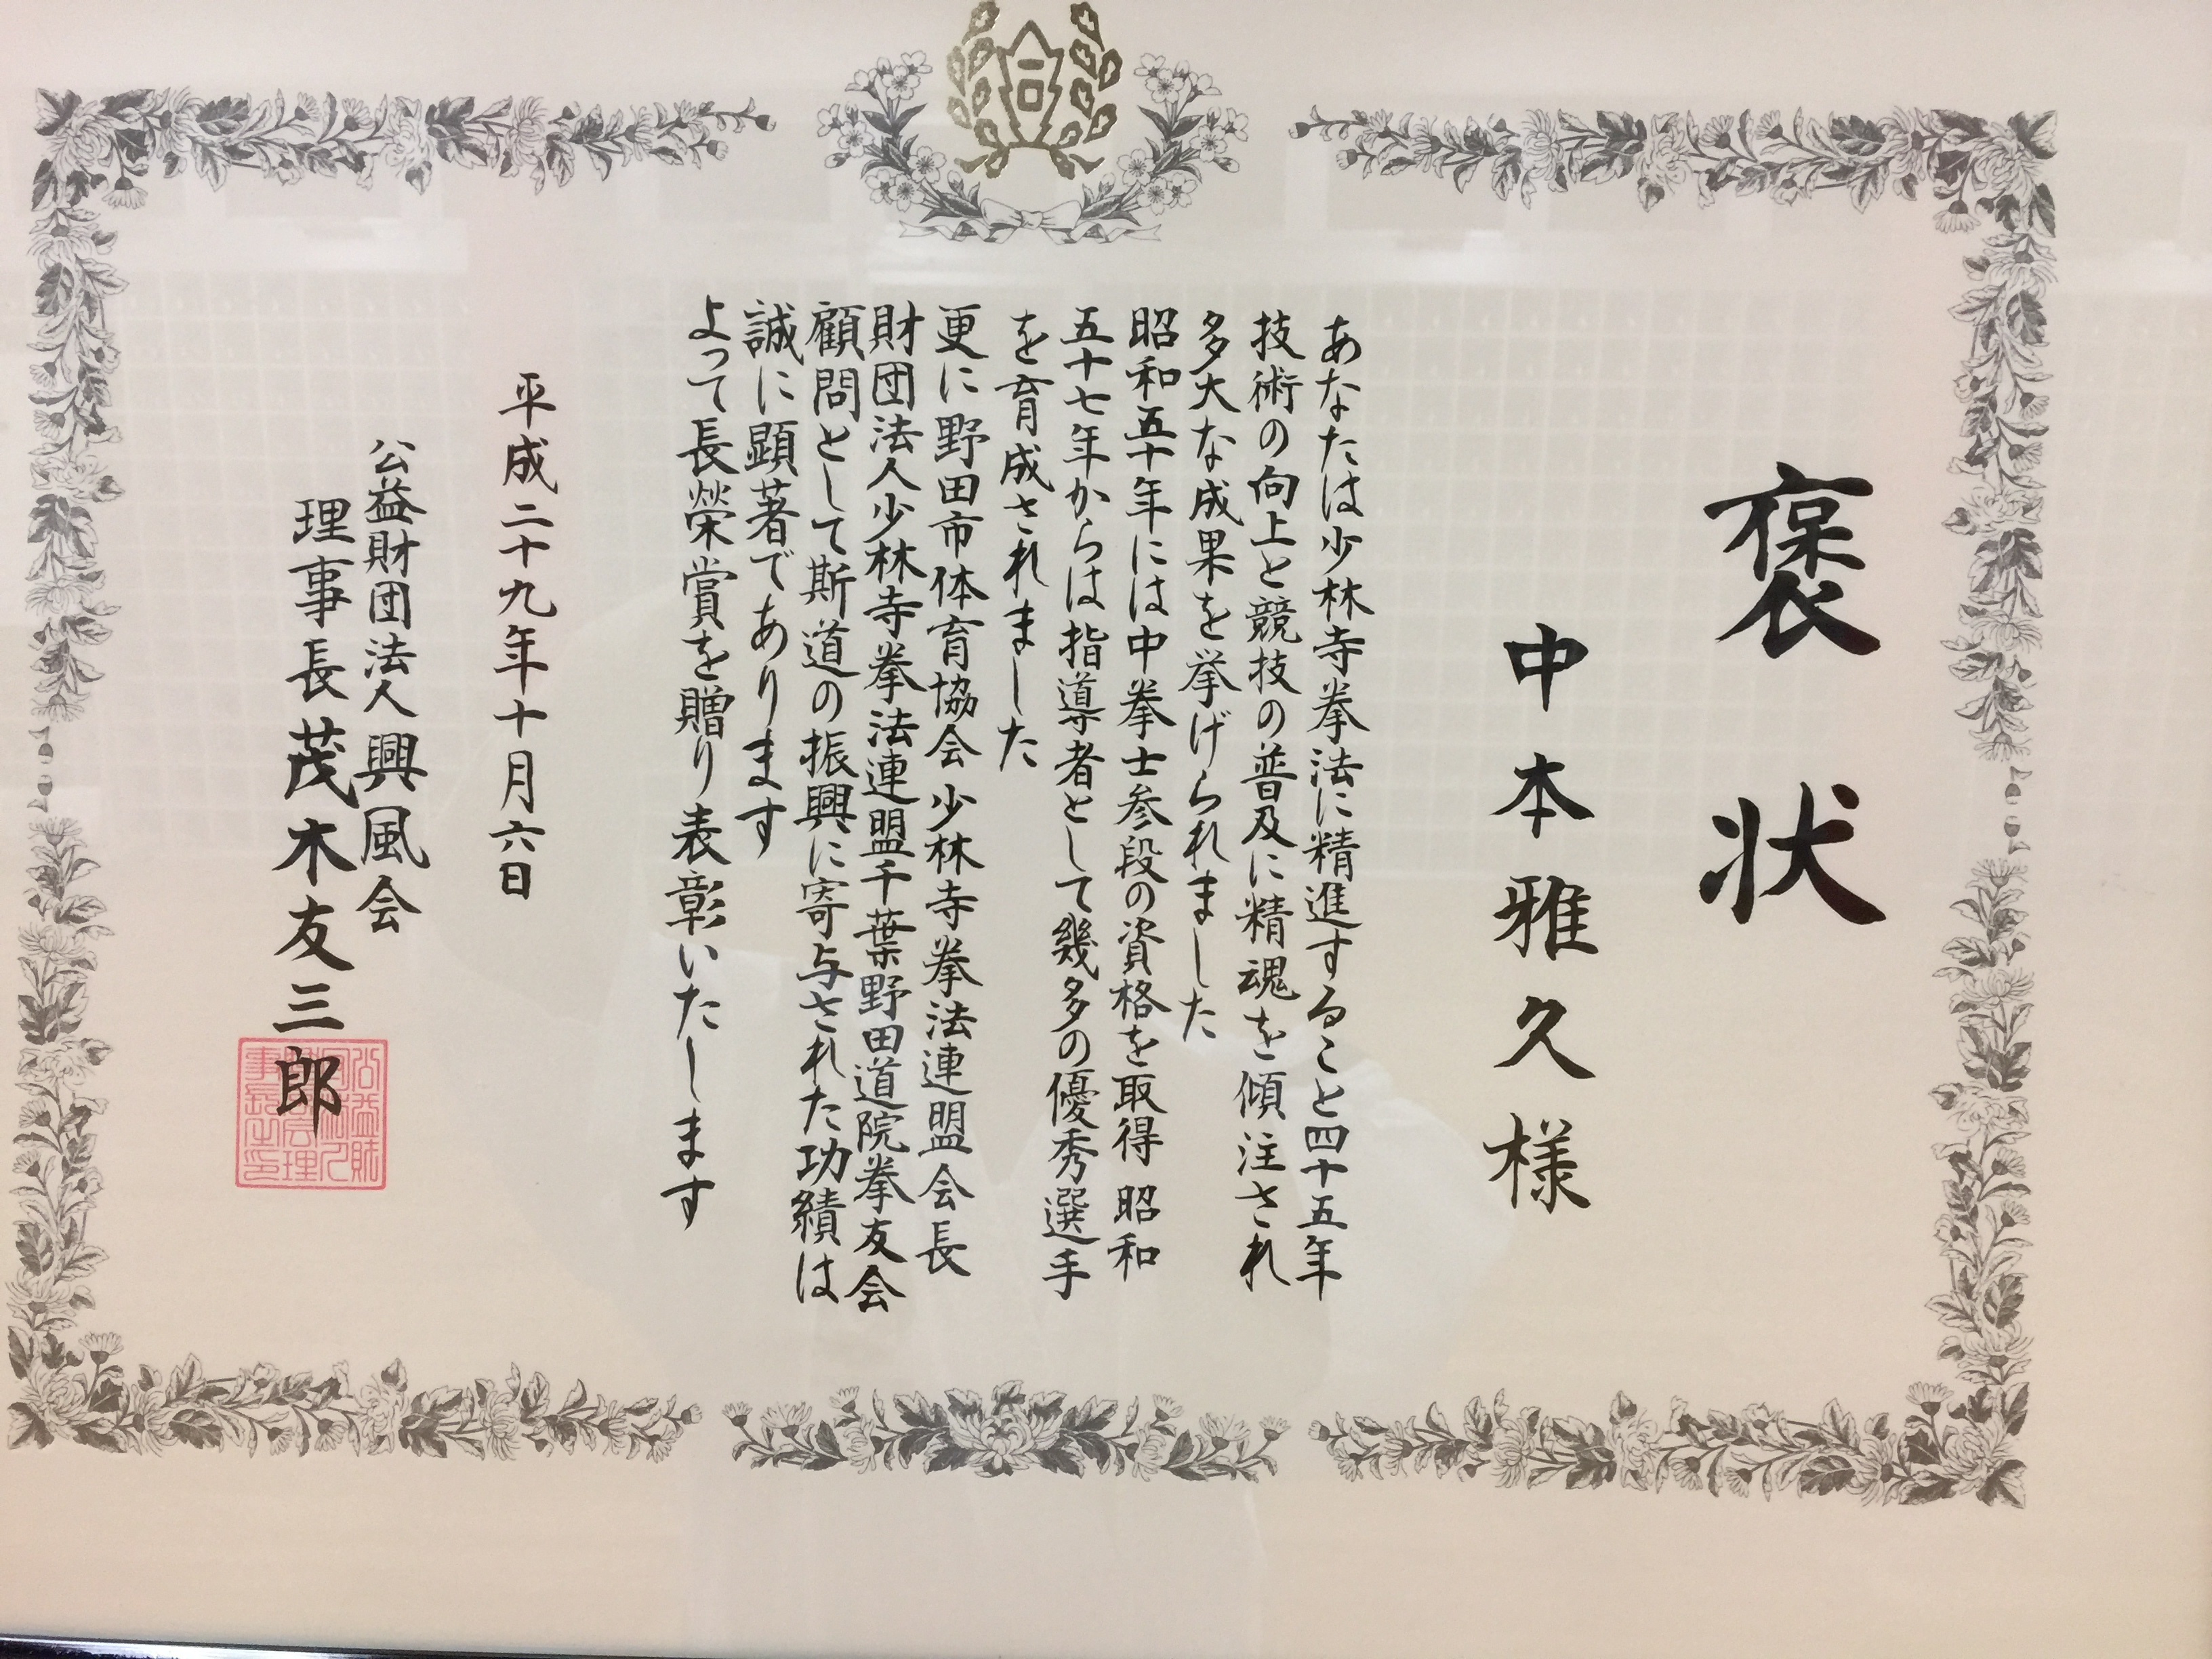 褒状
中本雅久様
あなたは少林寺拳法に精進すること四十五年
技術の向上と競技の普及に精魂を傾注され
多大な成果を挙げられました
昭和五十年には中拳士参段の資格を取得 昭和
五十七年からは指導者として幾多の優秀選手
を育成されました
更に野田市体育協会 少林寺拳法連盟会長
財団法人少林寺拳法連盟千葉野田道院拳友会
顧問として斯道の振興に寄与された功績は
誠に顕著であります
よって長榮賞を贈り表彰いたします
平成二十九年十月六日
公益財団法人興風会
理事長 茂木友三郎